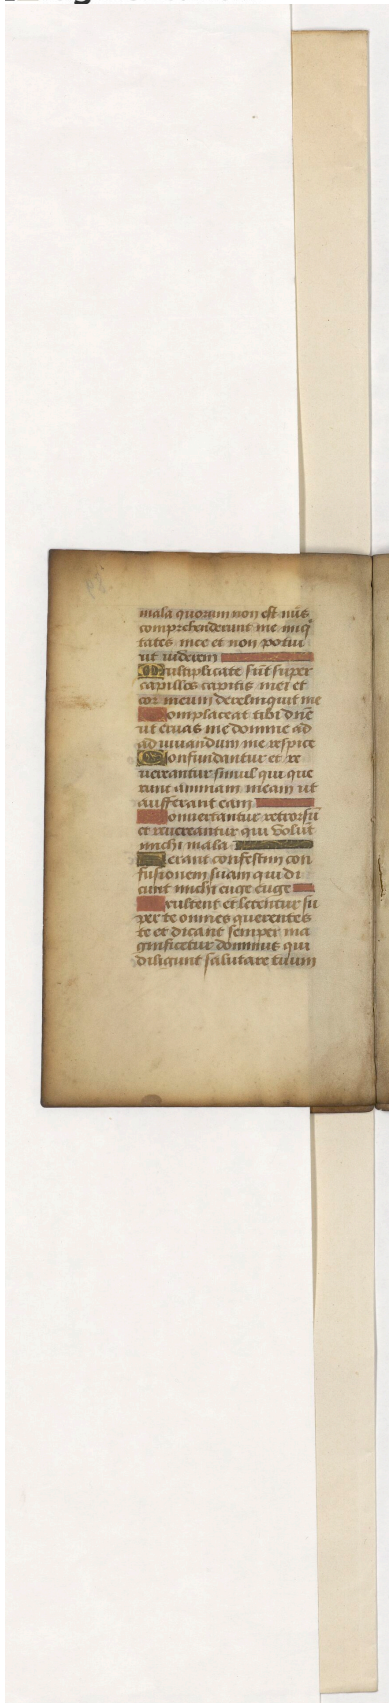 mala quorum non est nũs
comprehenderunt me iniq
tates mee et non potui
ut viderem
Multiplicate sũt super
capillos capitis mei et
cor meum dereliquit me
Complaceat tibi dñe
ut eruas me domine ad
adiuuandum me respice
Confundantur et re
uereantur simul qui que
runt animam meam ut
aufferant eam
Conuertantur retrorsũ
et reuereantur qui volũt
michi mala
Ferant confestim con
fusionem suam qui di
cunt michi euge euge
Exultent et letentur su
per te omnes querentes
te et dicant semper ma
gnificetur dominus qui
diligunt salutare tuum